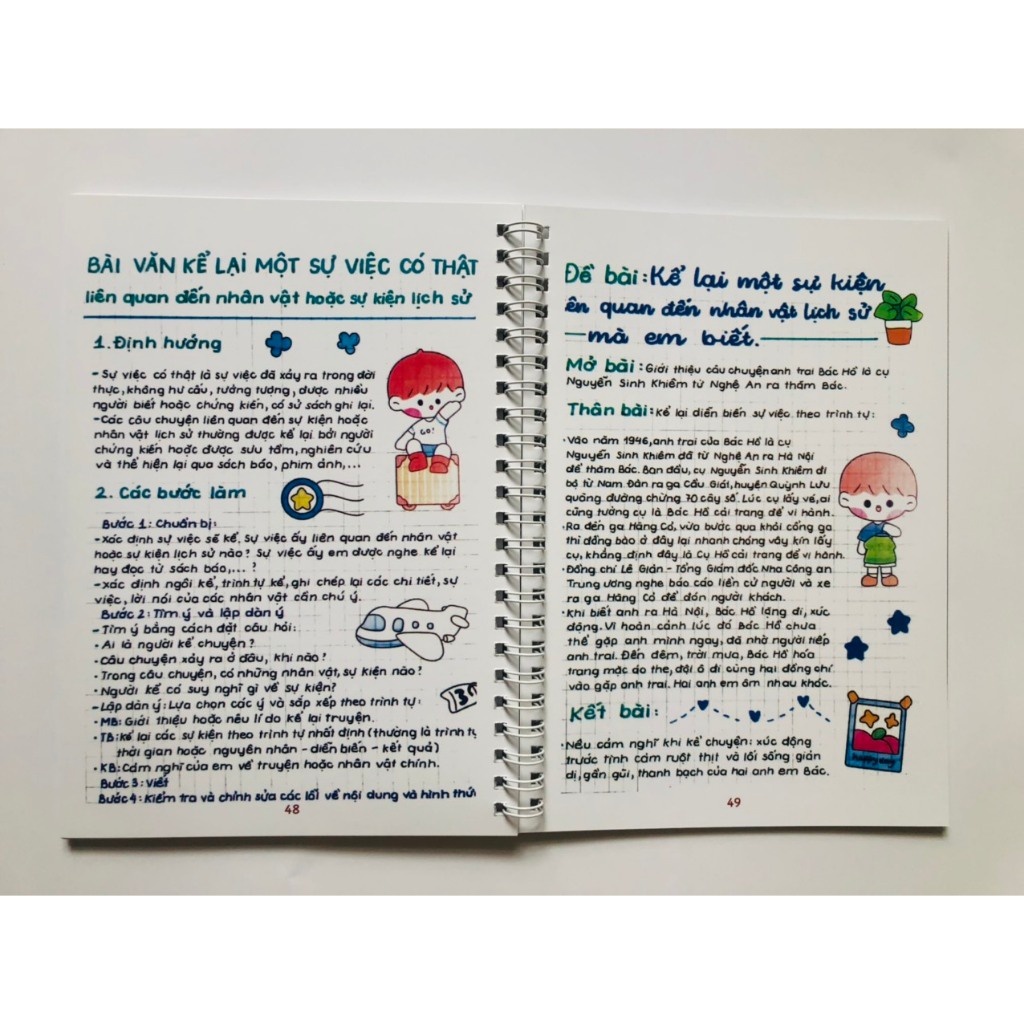 BÀI VĂN KỂ LẠI MỘT SỰ VIỆC CÓ THẬT
liên quan đến nhân vật hoặc sự kiện lịch sử
1. Định hướng
- Sự việc có thật là sự việc đã xảy ra trong đời
thực, không hư cấu, tưởng tượng, được nhiều
người biết hoặc chứng kiến, có sử sách ghi lại.
- Các câu chuyện liên quan đến sự kiện hoặc
nhân vật lịch sử thường được kể lại bởi người
chứng kiến hoặc được sưu tầm, nghiên cứu
và thể hiện lại qua sách báo, phim ảnh,...
GO!
2. Các bước làm
Bước 1: Chuẩn bị:
- Xác định sự việc sẽ kể, Sự việc ấy liên quan đến nhân vật
hoặc sự kiện lịch sử nào? Sự việc ấy em được nghe kể lại
hay đọc từ sách báo,... ?
- Xác định ngôi kể, trình tự kể, ghi chép lại các chi tiết, sự
việc, lời nói của các nhân vật cần chú ý.
Bước 2: Tìm ý và lập dàn ý
- Tìm ý bằng cách đặt câu hỏi:
• Ai là người kể chuyện?
• Câu chuyện xảy ra ở đâu, khi nào?
• Trong câu chuyện, có những nhân vật, sự kiện nào?
• Người kể có suy nghĩ gì về sự kiện?
- Lập dàn ý: Lựa chọn các ý và sắp xếp theo trình tự:
• MB: Giới thiệu hoặc nêu lí do kể lại truyện.
• TB: kể lại các sự kiện theo trình tự nhất định (thường là trình tự
thời gian hoặc nguyên nhân - diễn biến - kết quả)
• KB: Cảm nghĩ của em về truyện hoặc nhân vật chính.
Bước 3: Viết
Bước 4: Kiểm tra và chỉnh sửa các lỗi về nội dung và hình thức
48
Đề bài: Kể lại một sự kiện
ên quan đến nhân vật lịch sử
mà em biết.
Mở bài: Giới thiệu câu chuyện anh trai Bác Hồ là cụ
Nguyễn Sinh Khiêm từ Nghệ An ra thăm Bác.
Thân bài: Kể lại diễn biến sự việc theo trình tự:
• Vào năm 1946, anh trai của Bác Hồ là cụ
Nguyễn Sinh Khiêm đã từ Nghệ An ra Hà Nội
để thăm Bác. Ban đầu, cụ Nguyễn Sinh Khiêm đi
bộ từ Nam Đàn ra ga Cầu Giát, huyện Quỳnh Lưu
quãng đường chừng 70 cây số. Lúc cụ lấy vé, ai
cũng tưởng cụ là Bác Hồ cải trang để vi hành.
• Ra đến ga Hàng Cỏ, vừa bước qua khỏi cổng ga
thì đồng bào ở đây lại nhanh chóng vây kín lấy
cụ, khẳng định đây là Cụ Hồ cải trang để vi hành.
• Đồng chí Lê Giản - Tổng Giám đốc Nha Công an
Trung ương nghe báo cáo liền cử người và xe
ra ga Hàng Cỏ để đón người khách.
• Khi biết anh ra Hà Nội, Bác Hồ lặng đi, xúc
động. Vì hoàn cảnh lúc đó Bác Hồ chưa
thể gặp anh mình ngay, đã nhờ người tiếp
anh trai. Đến đêm, trời mưa, Bác Hồ hóa
trang mặc áo the, đội ô đi cùng hai đồng chí
vào gặp anh trai. Hai anh em ôm nhau khóc.
Kết bài:
• Nêu cảm nghĩ khi kể chuyện: xúc động
trước tình cảm ruột thịt và lối sống giản
dị, gần gũi, thanh bạch của hai anh em Bác.
49